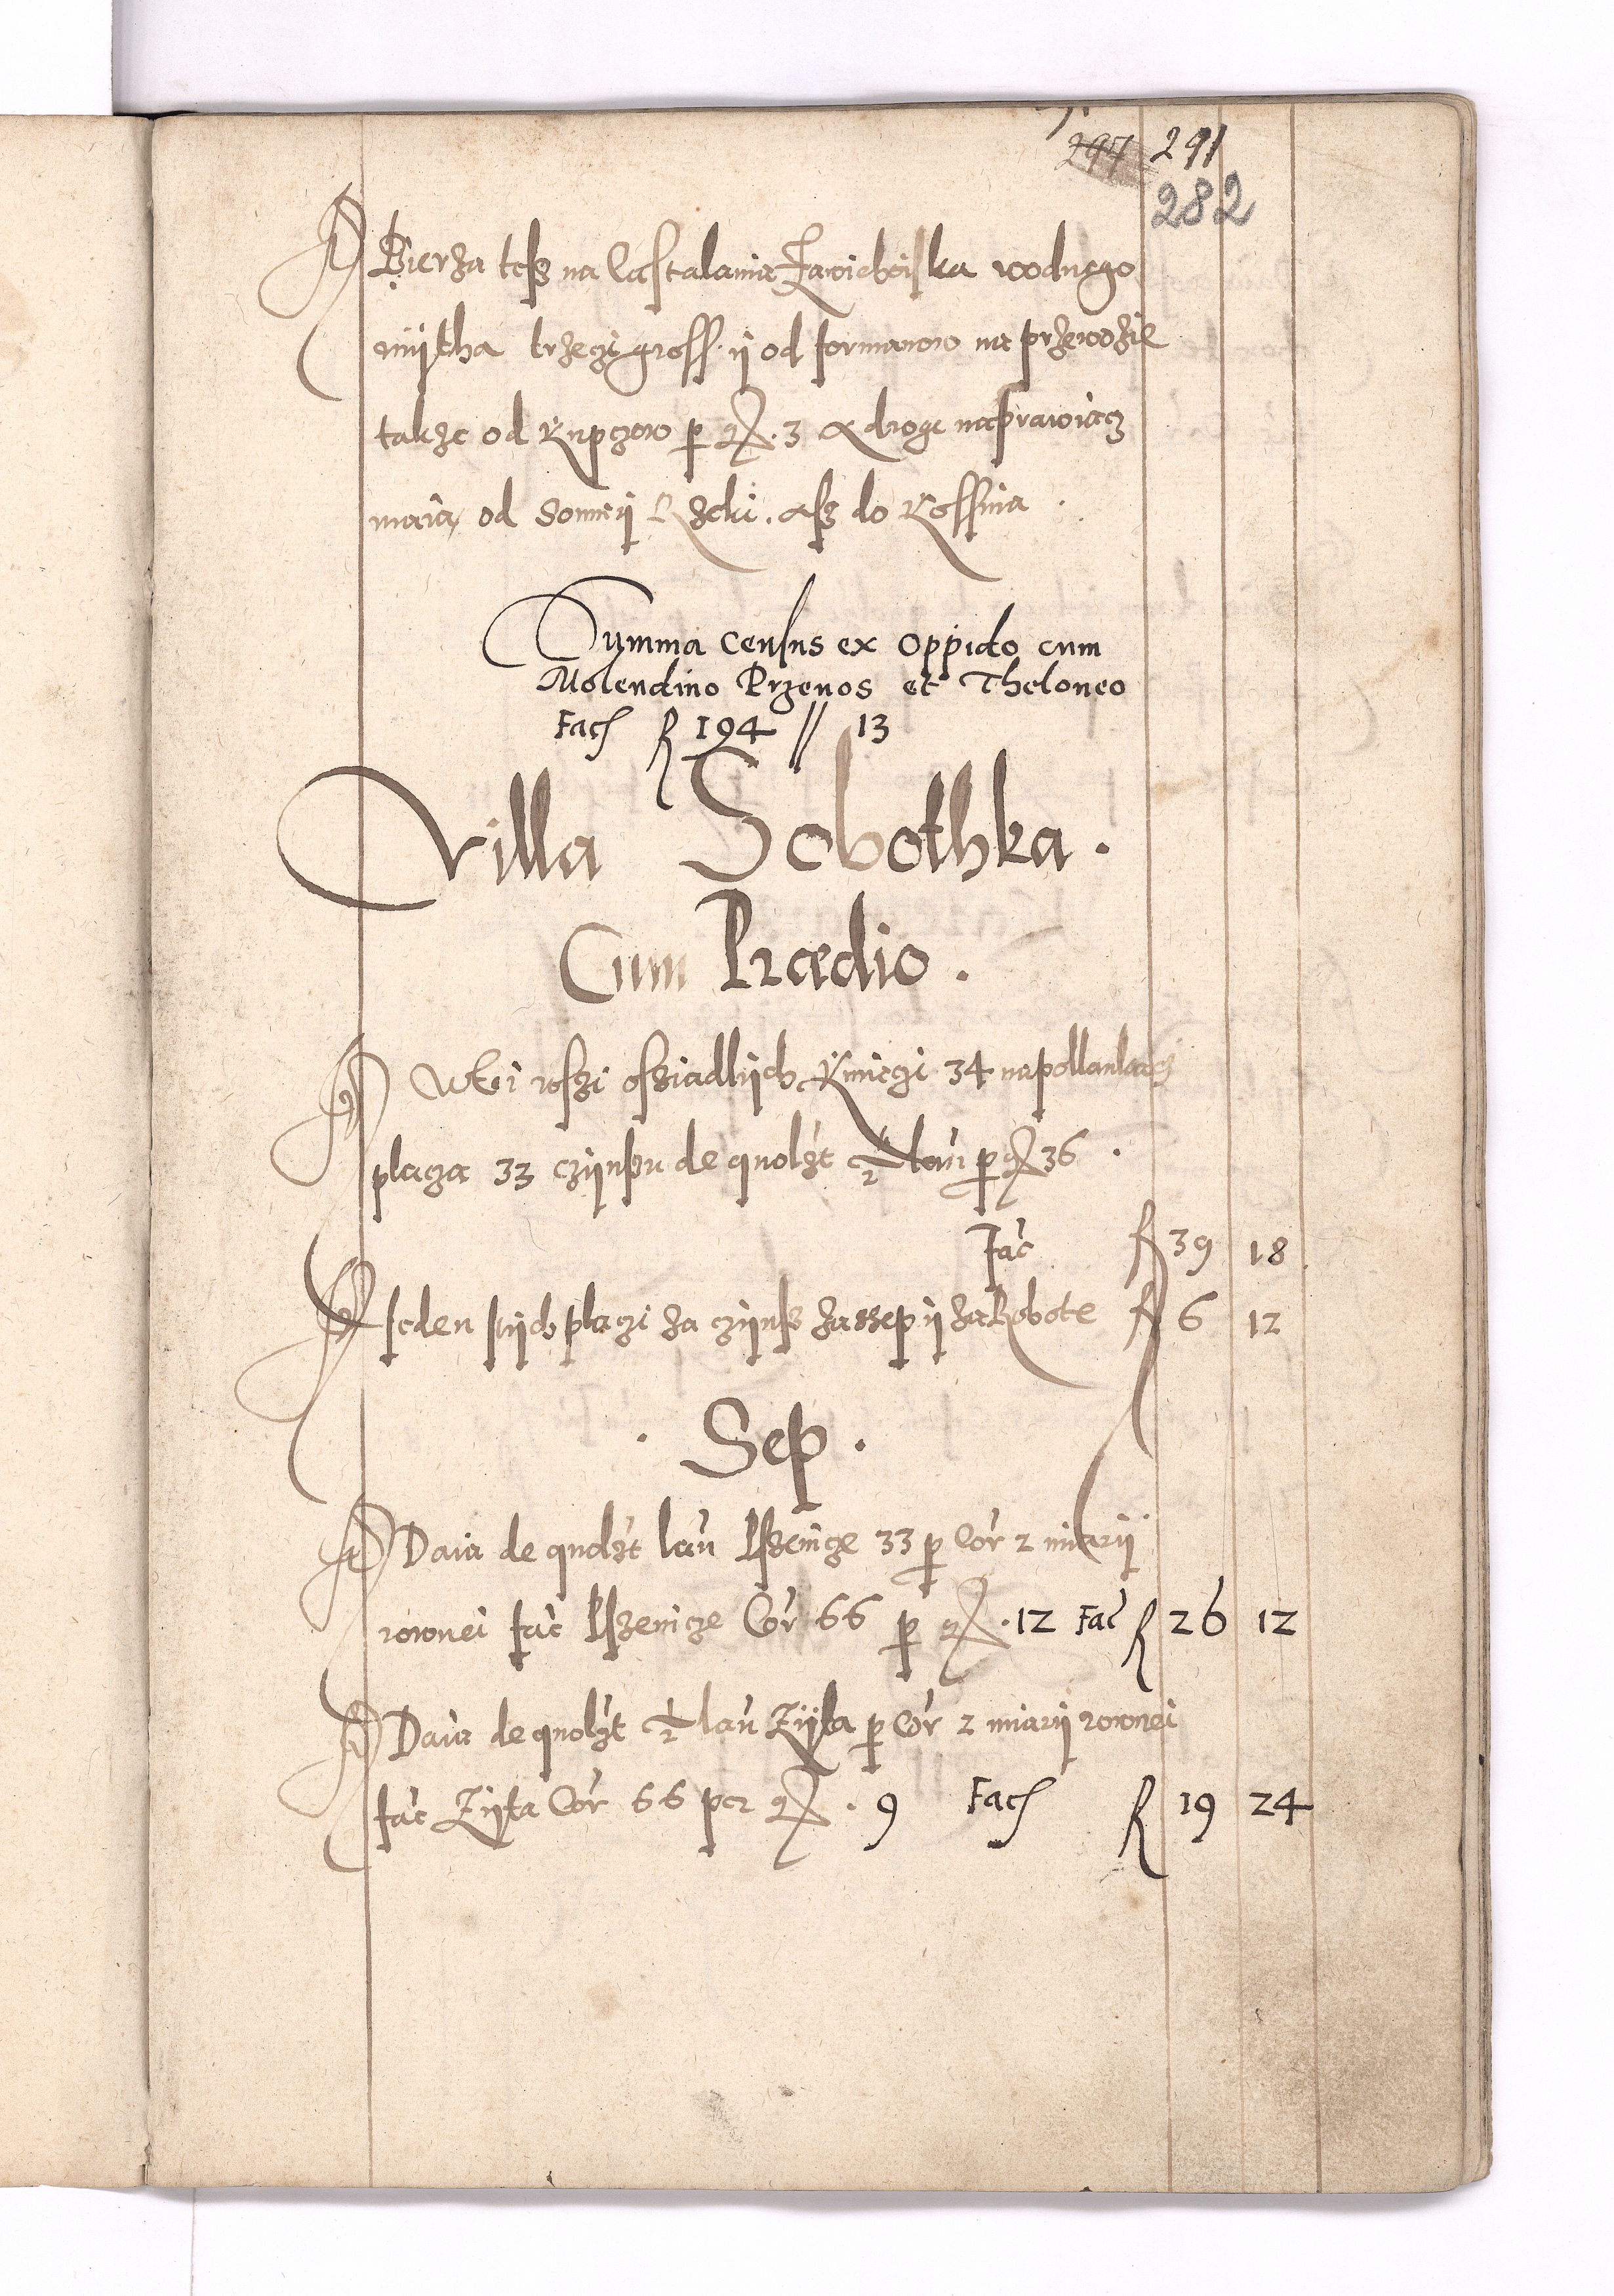 297 291
282
Bierza tesz na Castalania Zawichoiska wodnego
mijtha trzeczi gross. ij od formanow na przewozie
takze od Kupczow per gr. 3 a droge naprawiacz
maia, od Somnij Rzeki. asz do Kossina.
Summa census ex oppido cum
Molendino Przenos et Theloneo
Fac R 194 // 13
Villa Sobothka.
Cum Prædio.
W tei wszi osziadlijch Kmieczi 34 na pollankacz
placza 33 czijnszu de quolzt ½ lan per gr 36.
fac R 39 18
Jeden s tijch placzi za czijnsz za ssep ij za Robote R 6 12
. Sep.
Daia de quolzt lan Pszenicze 33 per Cor 2 miarij
rownei fac Pszenicze Cor 66 per gr. 12 Fac R 26 12
Daia de quolzt ½ lan Zijta per Cor 2 miarij rownei
fac Zijta Cor 66 per gr. 9 Fac R 19 24